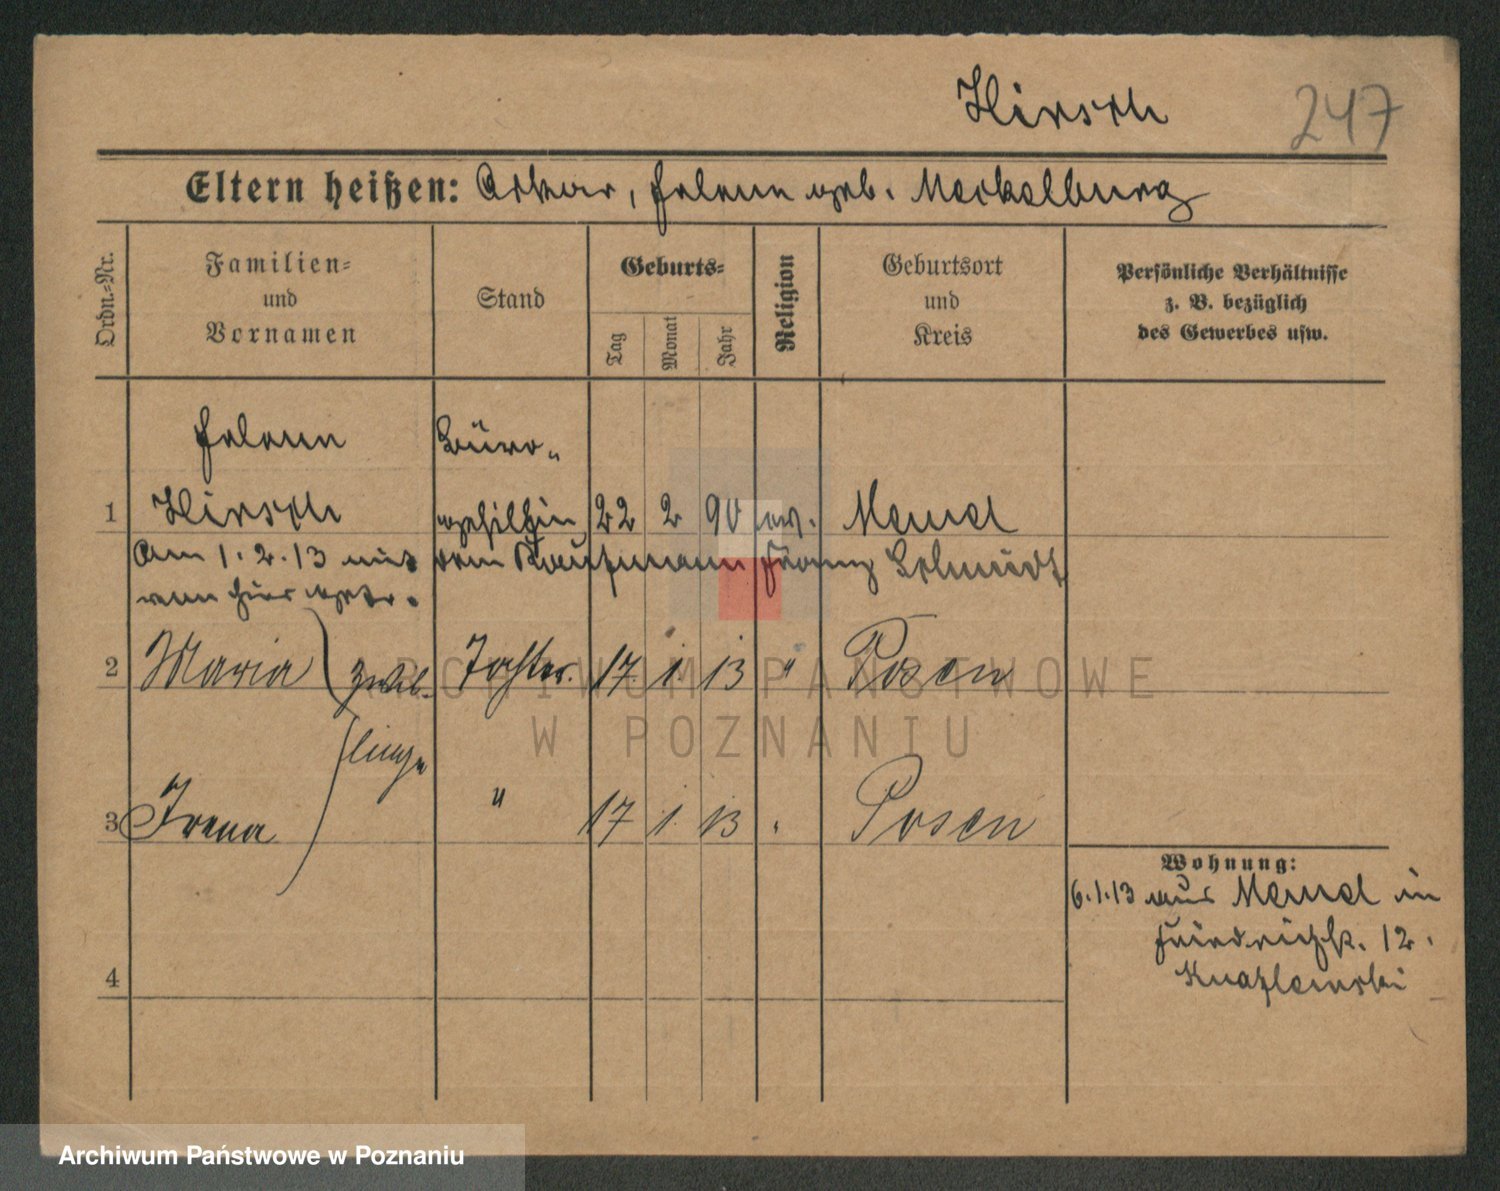 Hirsch 247
Eltern heißen: Oskar, Helene geb. Meckelburg
Ordn.-Nr.
Familien-
und
Vornamen
Stand
Geburts-
Tag
Monat
Jahr
Religion
Geburtsort
und
Kreis
Persönliche Verhältnisse
z. B. bezüglich
des Gewerbes usw.
Helene Büro-
1 Hirsch gehilfin 22 2 90 ev. Memel
Am 1.2.13 mit dem Kaufmann Franz Schmidt
hier getr.
2 Maria Zwil- Tochter 17. 1. 13 " Posen
linge
3 Irena " 17 1. 13 " Posen
Wohnung:
6.1.13 aus Memel in
Friedrichstr. 12.
4
ARCHIWUM PAŃSTWOWE
W POZNANIU
Archiwum Państwowe w Poznaniu